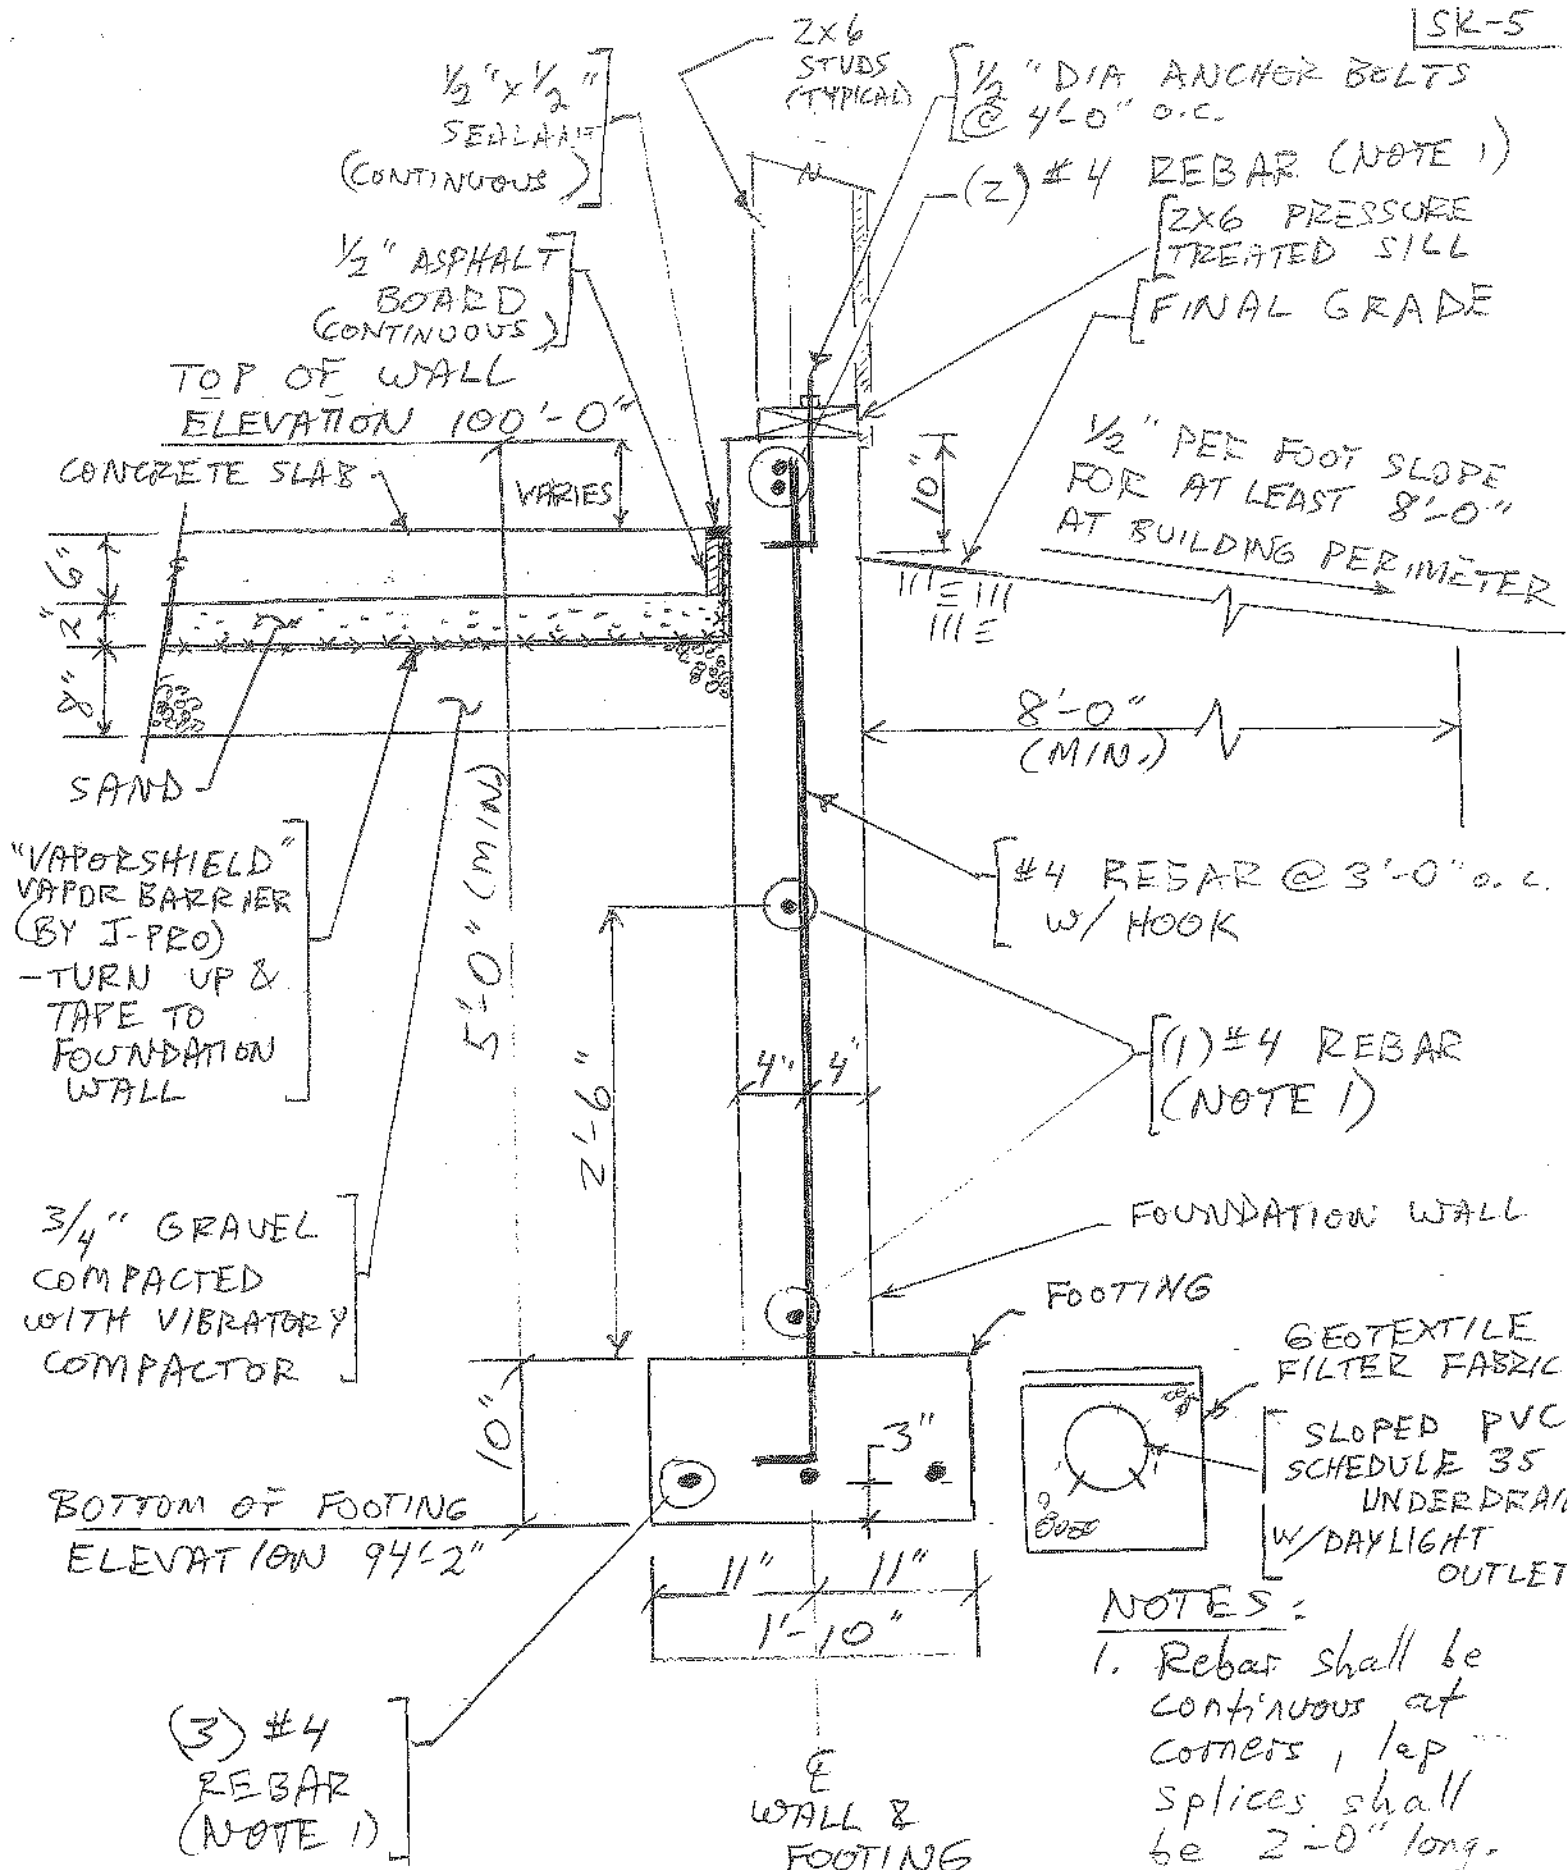 SK-5
2X6
STUDS
(TYPICAL)
1/2" DIA ANCHOR BOLTS
@ 4'-0" o.c.
(2) #4 REBAR (NOTE 1)
2X6 PRESSURE
TREATED SILL
FINAL GRADE
1/2" x 1/2"
SEALANT
(CONTINUOUS)
1/2" ASPHALT
BOARD
(CONTINUOUS)
TOP OF WALL
ELEVATION 100'-0"
CONCRETE SLAB
VARIES
10"
1/2" PER FOOT SLOPE
FOR AT LEAST 8'-0"
AT BUILDING PERIMETER
6"
2"
8"
SAND
8'-0"
(MIN.)
"VAPORSHIELD"
VAPOR BARRIER
(BY J-PRO)
-TURN UP &
TAPE TO
FOUNDATION
WALL
5'-0" (MIN)
#4 REBAR @ 3'-0" o.c.
W/ HOOK
2'-6"
4" 4"
(1) #4 REBAR
(NOTE 1)
3/4" GRAVEL
COMPACTED
WITH VIBRATORY
COMPACTOR
FOUNDATION WALL
FOOTING
GEOTEXTILE
FILTER FABRIC
SLOPED PVC
SCHEDULE 35
UNDERDRAIN
W/DAYLIGHT
OUTLET
10"
3"
BOTTOM OF FOOTING
ELEVATION 94'-2"
11" 11"
1'-10"
(3) #4
REBAR
(NOTE 1)
℄
WALL &
FOOTING
NOTES:
1. Rebar shall be
continuous at
corners, lap
splices shall
be 2'-0" long.